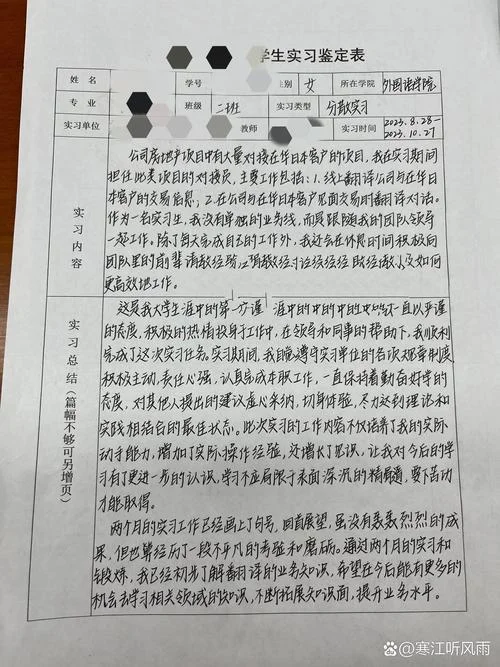 学生实习鉴定表
姓名 学号 性别 女 所在学院 外国语学院
专业 班级 二班 实习类型 分散实习
实习单位 教师 实习时间 2023.8.28-2023.10.27
实习内容
公司房地产项目中有大量对接在华日本客户的项目,我在实习期间
担任此类项目的对接员,主要工作包括:1.线上翻译公司与在华日
本客户的交易信息;2.在公司与在华日本客户见面交易时翻译对话。
作为一名实习生,我没有单独的业务线,而是跟随我的团队领导
一起工作。除了每天完成自己的工作外,我还会在休息时间积极向
团队里的前辈请教经验,以及如何
更高效地工作。
实习总结(篇幅不够可另增页)
这是我大学生涯中的第一 一直以严谨
的态度,积极的热情投身于工作中,在领导和同事的帮助下,我顺利
完成了这次实习任务。实习期间,我自觉遵守实习单位的各项规章制度
积极主动,责任心强,认真完成本职工作,一直保持着勤奋好学的
态度,对其他人提出的建议虚心采纳,切身体验,尽力达到理论和
实践相结合的最佳状态。此次实习的工作内容不仅培养了我的实际
动手能力,增加了实际操作经验,还增长了见识,让我对今后的学
习有了更进一步的认识,学习不应局限于表面深沉的 要下苦功
才能取得。
两个月的实习工作已经画上了句号,回首展望,虽没有轰轰烈烈的成
果,但也算经历了一段不平凡的考验和磨砺。通过两个月的实习和
锻炼,我已经初步了解翻译的业务知识,希望在今后能有更多的
机会去学习相关领域的知识,不断拓展知识面,提升业务水平。
Baidu 百科 @寒江听风雨